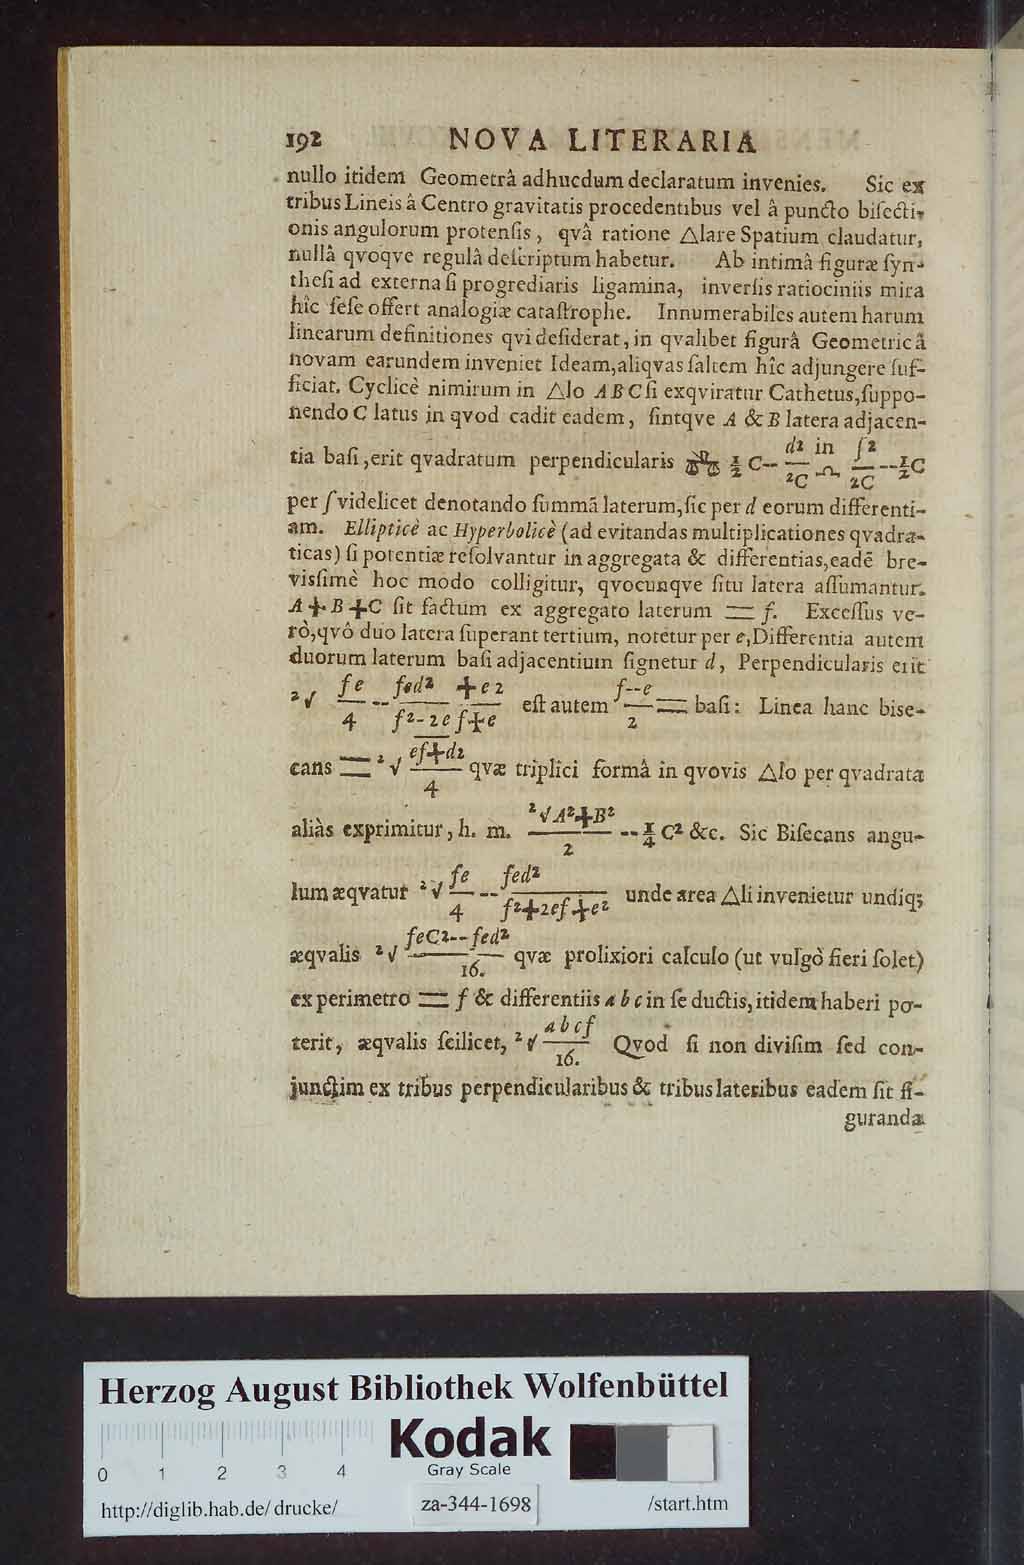 192 NOVA LITERARIA
nullo itidem Geometrâ adhucdum declaratum invenies. Sic ex
tribus Lineis â Centro gravitatis procedentibus vel â puncto biſecti-
onis angulorum protenſis, qvâ ratione △lare Spatium claudatur,
nullâ qvoqve regulâ deſcriptum habetur. Ab intimâ figuræ ſyn-
theſi ad externa ſi progrediaris ligamina, inverſis ratiociniis mira
hîc ſeſe offert analogiæ cataſtrophe. Innumerabiles autem harum
linearum definitiones qvi deſiderat, in qvalibet figurâ Geometricâ
novam earundem inveniet Ideam, aliqvas ſaltem hîc adjungere ſuf-
ficiat. Cyclicè nimirum in △lo ABC ſi exqviratur Cathetus, ſuppo-
nendo C latus in qvod cadit eadem, ſintqve A & B latera adjacen-
tia baſi, erit qvadratum perpendicularis ½ C-- d2/2C in ſ2/2C --½C
per ſ videlicet denotando ſummã laterum, ſic per d eorum differenti-
am. Ellipticè ac Hyperbolicè (ad evitandas multiplicationes qvadra-
ticas) ſi potentiæ reſolvantur in aggregata & differentias, eadẽ bre-
viſſimè hoc modo colligitur, qvocunqve ſitu latera aſſumantur.
A+B+C ſit factum ex aggregato laterum = f. Exceſſus ve-
rò, qvô duo latera ſuperant tertium, notetur per e, Differentia autem
duorum laterum baſi adjacentium ſignetur d, Perpendicularis erit
2√ fe/4 -- fed2/f2-2ef +e2/+e eſt autem f--e/2 = baſi: Linea hanc biſe-
cans = 2√ ef+d2/4 qvæ triplici formâ in qvovis △lo per qvadrata
aliàs exprimitur, h. m. 2√A2+B2/2 --¼ C2 &c. Sic Biſecans angu-
lum æqvatur 2√ fe/4 -- fed2/f2+2ef+e2 unde area △li invenietur undiq;
æqvalis 2√ feC2--fed2/16. qvæ prolixiori calculo (ut vulgò fieri ſolet)
ex perimetro = f & differentiis a b c in ſe ductis, itidem haberi po-
terit, æqvalis ſcilicet, 2√ abcf/16. Qvod ſi non diviſim ſed con-
junctim ex tribus perpendicularibus & tribus lateribus eadem ſit fi-
guranda
Herzog August Bibliothek Wolfenbüttel
Kodak
Gray Scale
0 1 2 3 4
http://diglib.hab.de/drucke/ za-344-1698 /start.htm